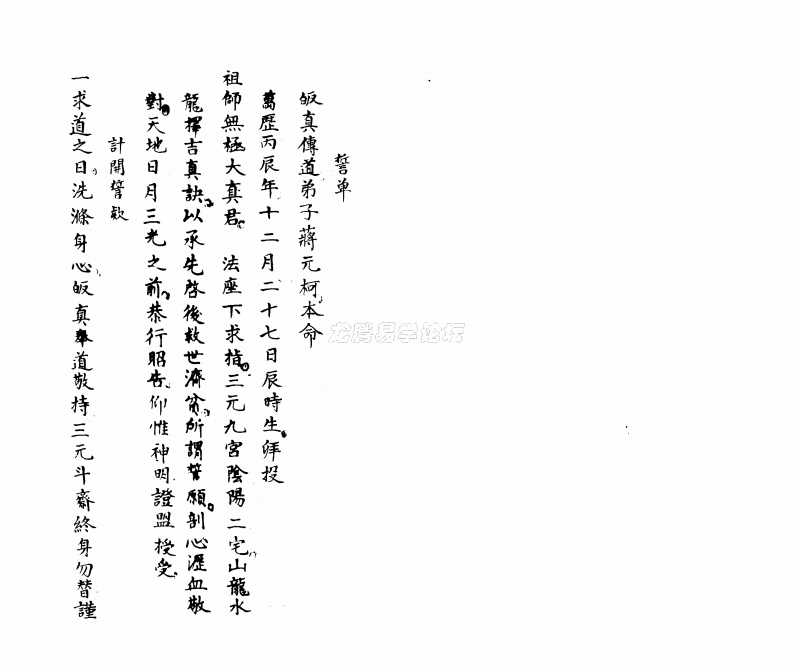 誓单
皈真傳道弟子蔣元柯本命
萬歷丙辰年十二月二十七日辰時生拜投
祖師無極大真君 法座下求指三元九宮陰陽二宅山龍水
龍擇吉真訣以承先啓後救世濟貧所謂誓願剖心瀝血敬
對天地日月三光之前恭行昭告仰惟神明證盟授受
計開誓欵
一求道之日洗滌身心皈真奉道敬持三元斗齋終身勿替謹
龙腾易学论坛